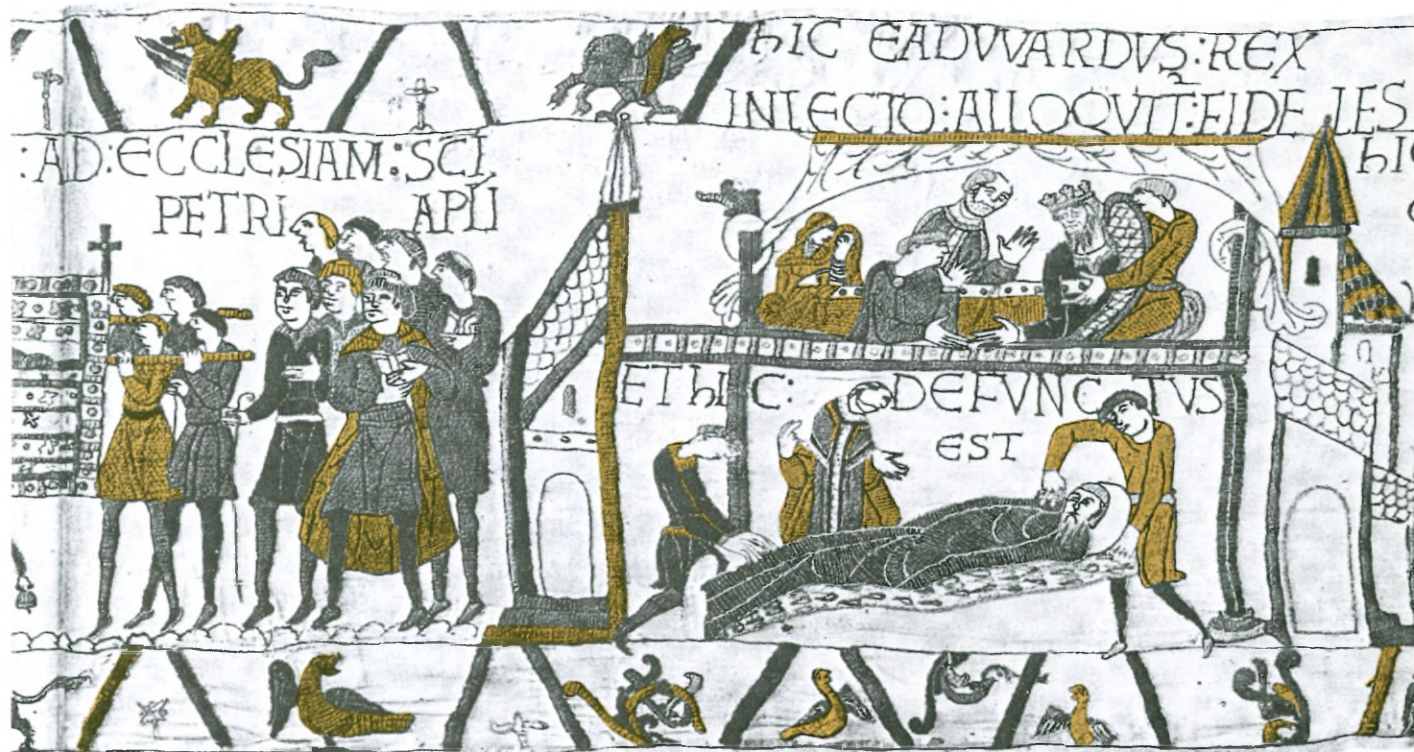 :AD:ECCLESIAM:SCI
PETRI APLI
hIC EADVVARDVS:REX
INLECTO:ALLOQVIT:FIDELES
ET hIC: DEFVNCTVS
EST
hIC